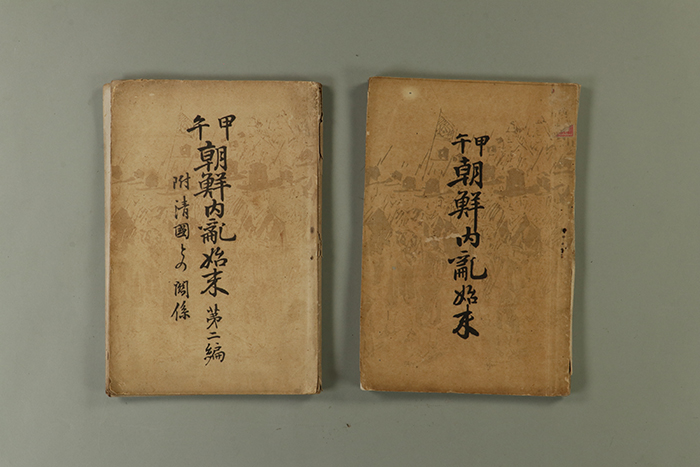 甲午
朝鮮内亂始末 第二編
附清國との関係
甲午
朝鮮内亂始末